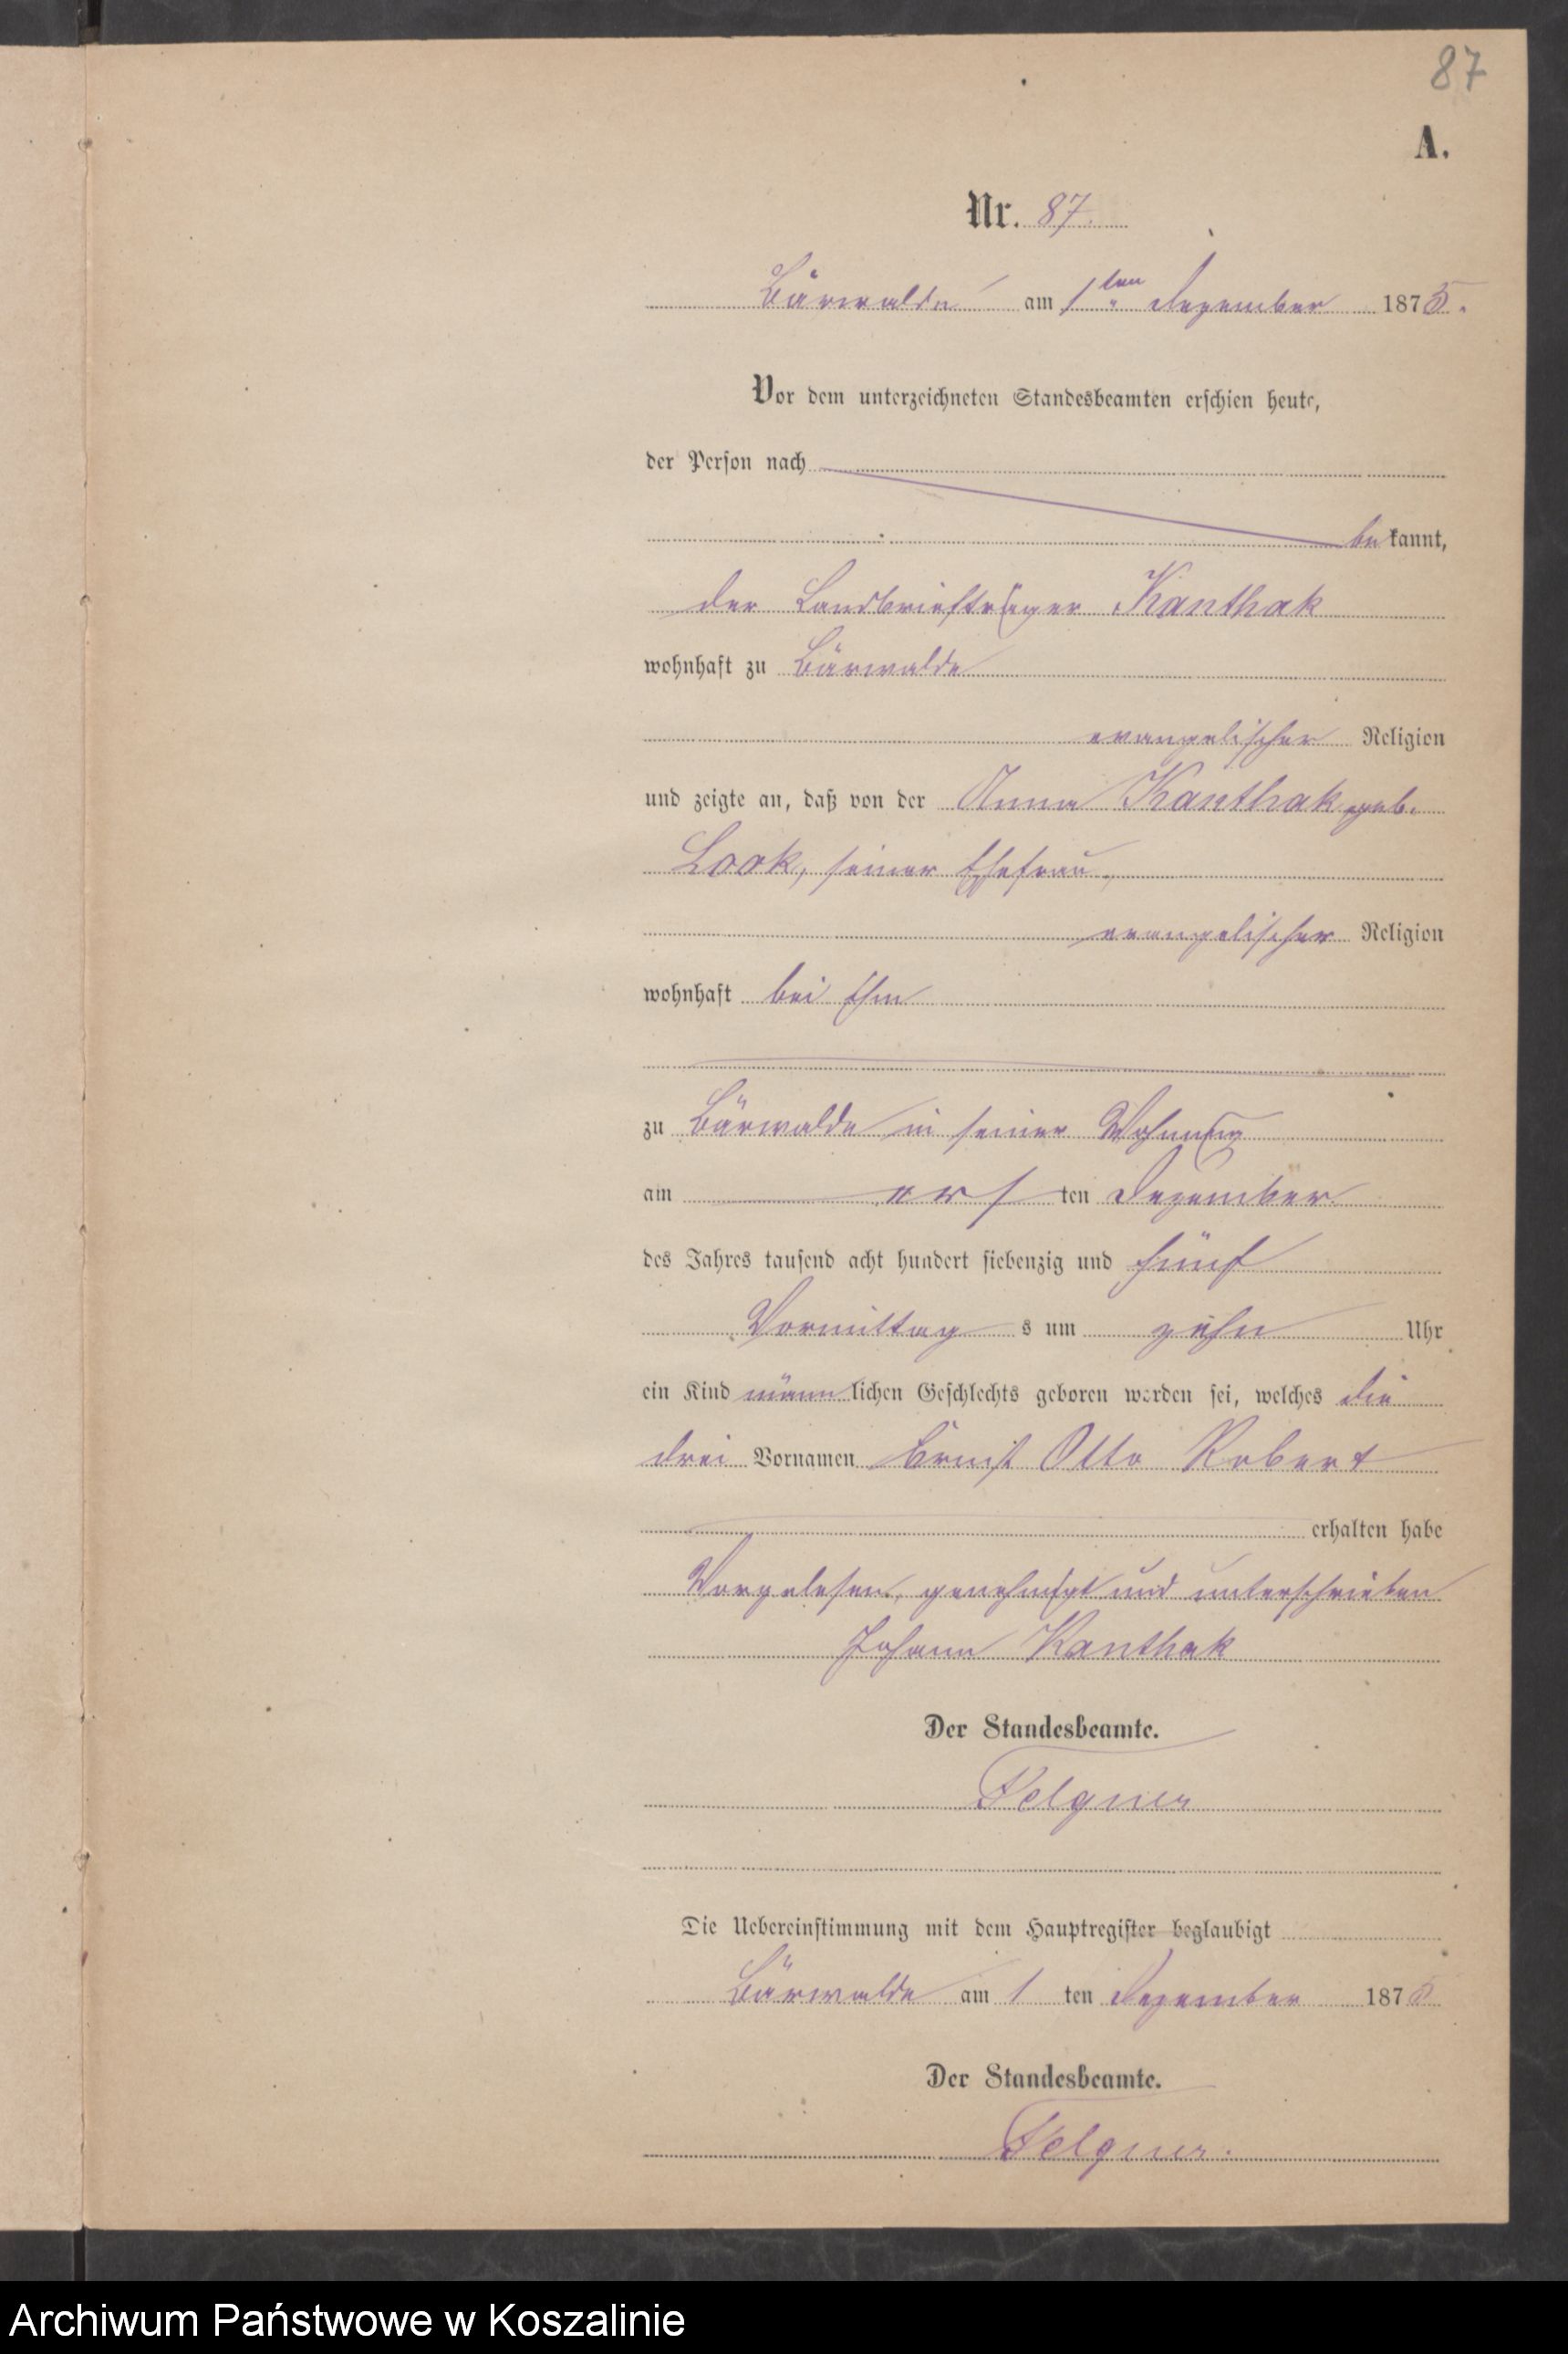 87
A.
Nr. 87.
Bärwalde am 1ten Dezember 1875.
Vor dem unterzeichneten Standesbeamten erschien heute,
der Person nach
bekannt,
der Landbriefträger Kanthak
wohnhaft zu Bärwalde
evangelischer Religion
und zeigte an, daß von der Anna Kanthak geb.
Look, seiner Ehefrau,
evangelischer Religion
wohnhaft bei ihm
zu Bärwalde in seiner Wohnung
am ersten Dezember
des Jahres tausend acht hundert siebenzig und fünf
Vormittags um zehn Uhr
ein Kind männlichen Geschlechts geboren worden sei, welches die
drei Vornamen Ernst Otto Robert
erhalten habe
Vorgelesen, genehmigt und unterschrieben
Johann Kanthak
Der Standesbeamte.
Felgner
Die Uebereinstimmung mit dem Hauptregister beglaubigt
Bärwalde am 1ten Dezember 1875
Der Standesbeamte.
Felgner.
Archiwum Państwowe w Koszalinie